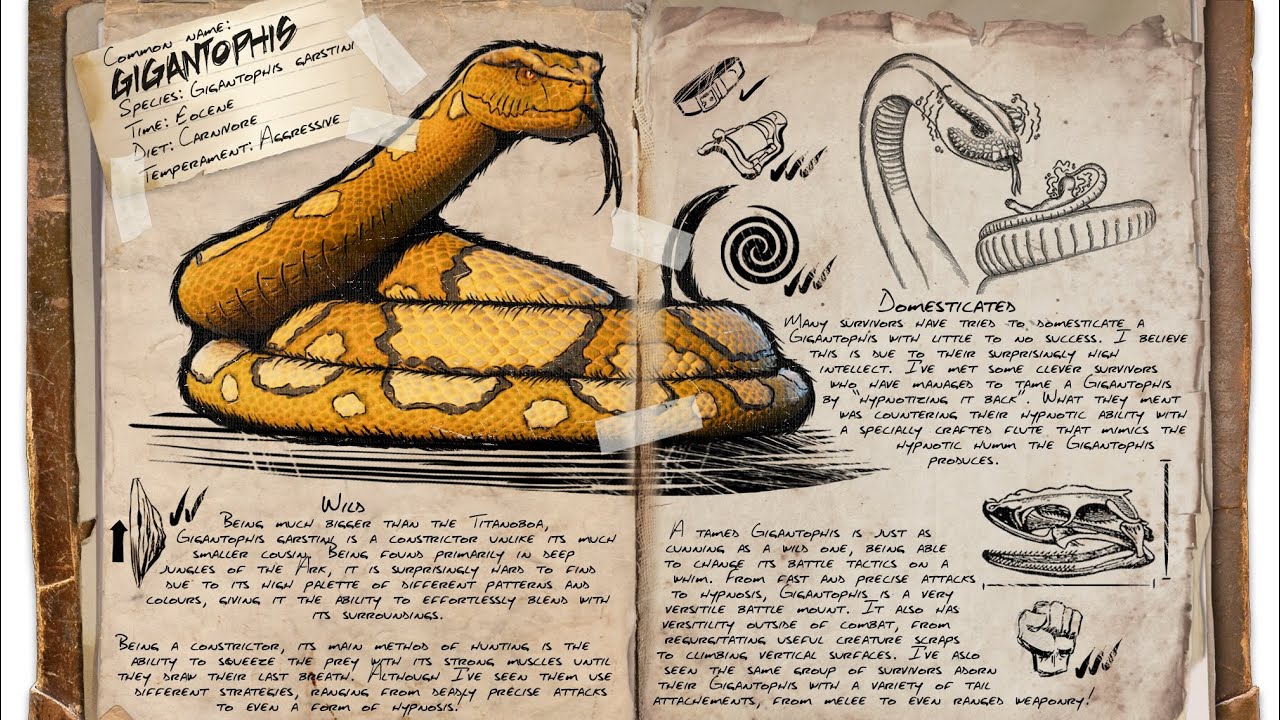 Common name:
GIGANTOPHIS
Species: Gigantophis garstini
Time: Eocene
Diet: Carnivore
Temperament: Aggressive
Wild
Being much bigger than the Titanoboa,
Gigantophis garstini is a constrictor unlike its much
smaller cousin. Being found primarily in deep
jungles of the Ark, it is surprisingly hard to find
due to its high palette of different patterns and
colours, giving it the ability to effortlessly blend with
its surroundings.
Being a constrictor, its main method of hunting is the
ability to squeeze the prey with its strong muscles until
they draw their last breath. Although I've seen them use
different strategies, ranging from deadly precise attacks
to even a form of hypnosis!
Domesticated
Many survivors have tried to domesticate a
Gigantophis with little to no success. I believe
this is due to their surprisingly high
intellect. I've met some clever survivors
who have managed to tame a Gigantophis
by "hypnotizing it back". What they ment
was countering their hypnotic ability with
a specially crafted flute that mimics the
hypnotic humm the Gigantophis
produces.
A tamed Gigantophis is just as
cunning as a wild one, being able
to change its battle tactics on a
whim. From fast and precise attacks
to hypnosis, Gigantophis is a very
versitile battle mount. It also has
versitility outside of combat, from
regurgitating useful creature scraps
to climbing vertical surfaces. I've aslo
seen the same group of survivors adorn
their Gigantophis with a variety of tail
attachements, from melee to even ranged weaponry!